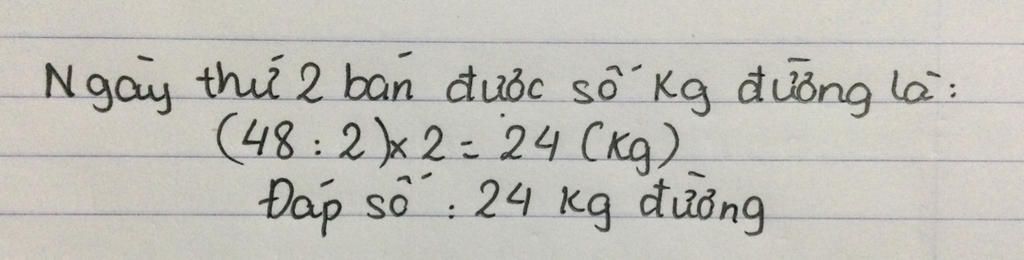 Ngày thứ 2 bán được số kg đường là:
(48 : 2) x 2 = 24 (kg)
Đáp số : 24 kg đường